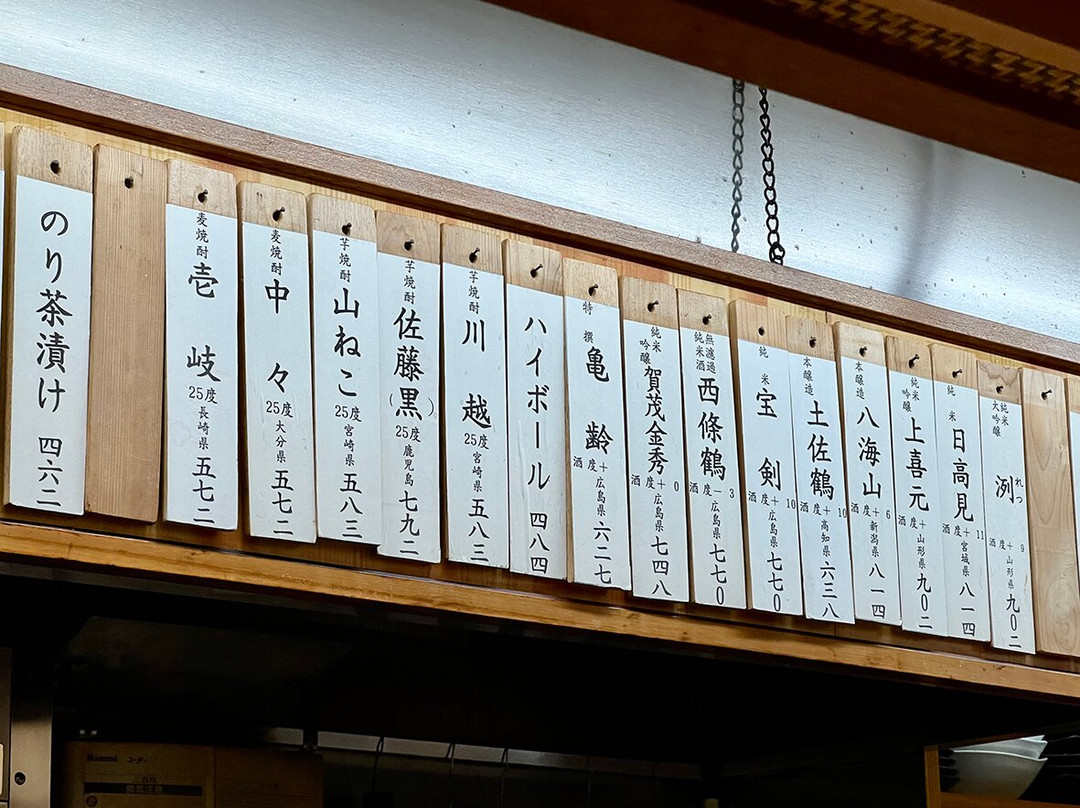 純米大吟醸 洌 れつ 酒度+9 山形県 九〇二
純米 日高見 酒度+11 宮城県 八一四
純米吟醸 上喜元 酒度+ 山形県 九〇二
本醸造 八海山 酒度+6 新潟県 八一四
本醸造 土佐鶴 酒度+10 高知県 六三八
純米 宝剣 酒度+10 広島県 七七〇
無濾過純米酒 西條鶴 酒度-3 広島県 七七〇
純米吟醸 賀茂金秀 酒度+0 広島県 七四八
特撰 亀齢 酒度+ 広島県 六二七
ハイボール 四八四
芋焼酎 川越 25度 宮崎県 五八三
芋焼酎 佐藤(黒) 25度 鹿児島 七九二
芋焼酎 山ねこ 25度 宮崎県 五八三
麦焼酎 中々 25度 大分県 五七二
麦焼酎 壱岐 25度 長崎県 五七二
のり茶漬け 四六二
Rinnai コーナー